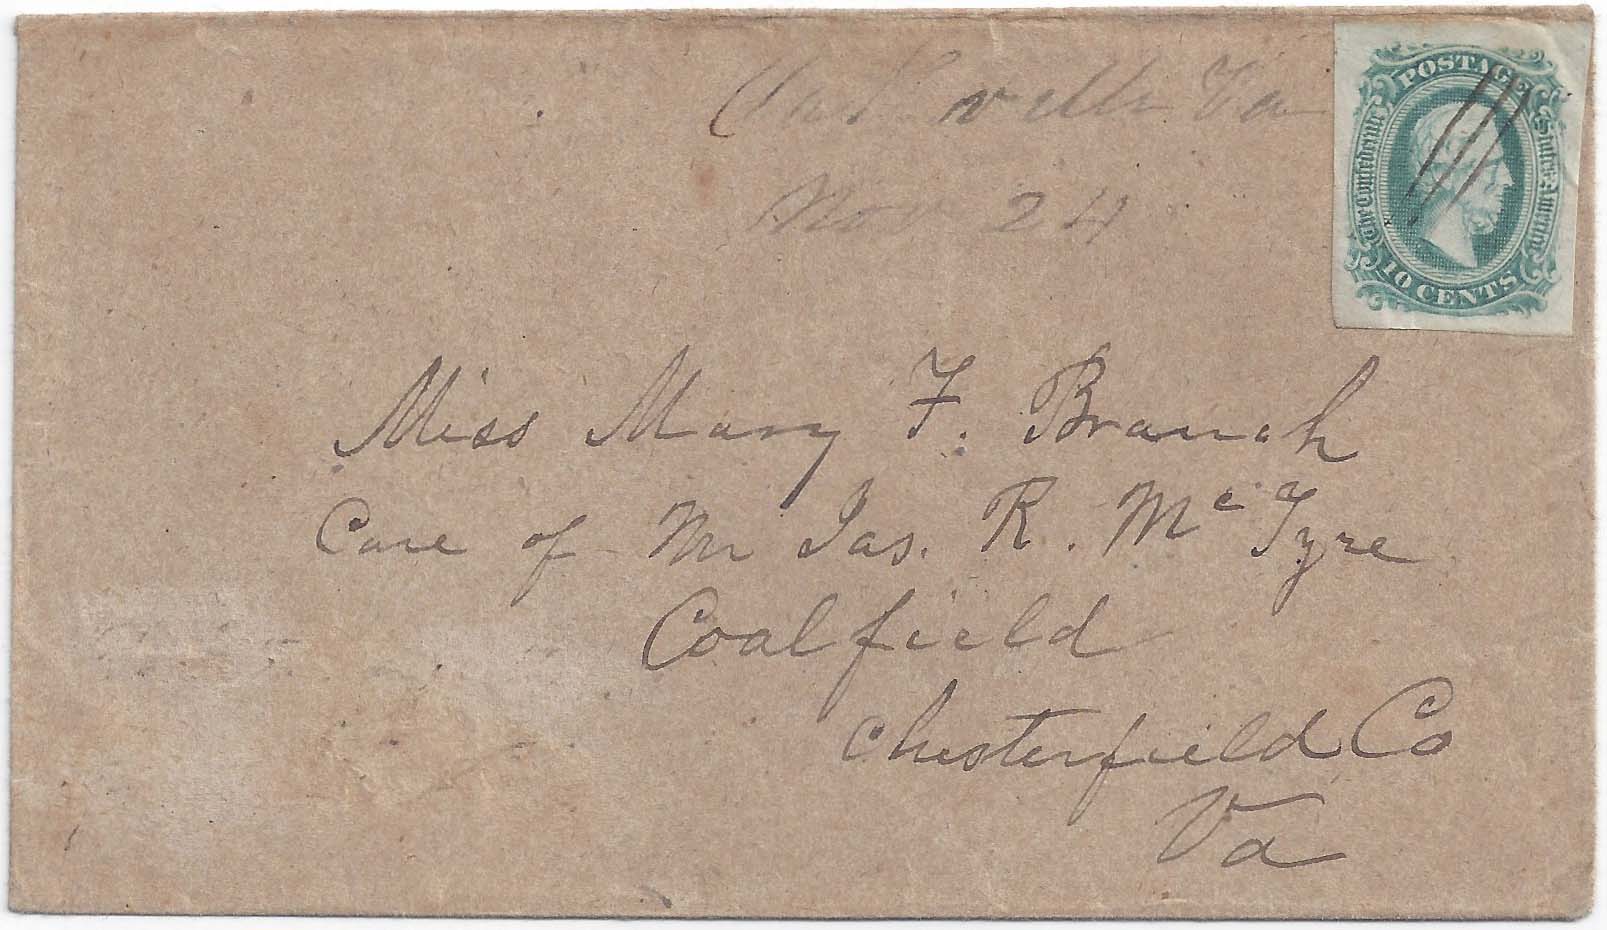 Va
Nov 24
POSTAGE
The Confederate
States of America
10 CENTS
Miss Mary F. Branch
Care of Mr Jas. R. McTyre
Coalfield
Chesterfield Co
Va